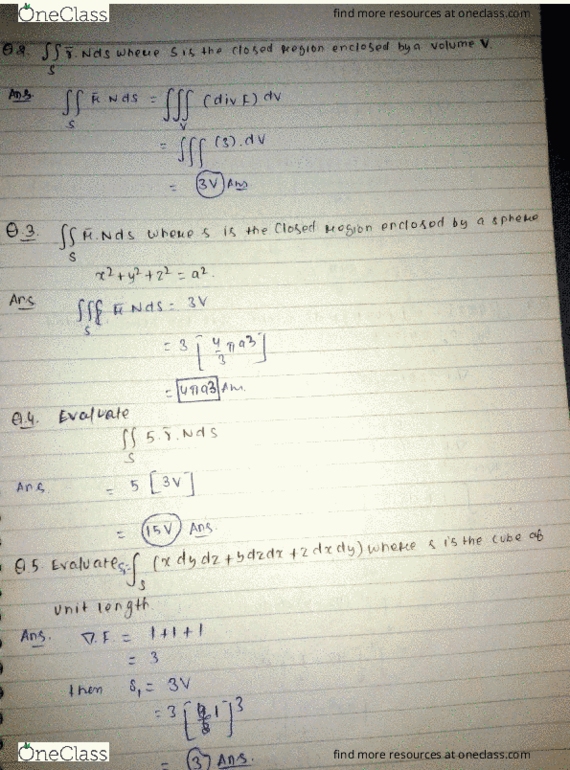 OneClass find more resources at oneclass.com
Q.2. ∬_S r̄.Nds where S is the closed region enclosed by a volume V.
Ans ∬_S r̄ Nds = ∭_V (div F) dv
= ∭ (3).dv
= 3V Ans
Q.3. ∬_S r̄.Nds where s is the closed region enclosed by a sphere
x²+y²+z² = a².
Ans ∭_S r̄ Nds = 3V
= 3 [4/3 πa³]
= 4πa3 Ans.
Q.4. Evaluate
∬_S 5.r̄.Nds
Ans = 5 [3V]
= 15V Ans.
Q.5. Evaluate S₁=∫_S (x dy dz + y dz dx + z dx dy) where s is the cube of
unit length.
Ans. ∇.F. = 1+1+1
= 3
then S₁ = 3V
= 3 [1]³
= 3 Ans.
OneClass find more resources at oneclass.com